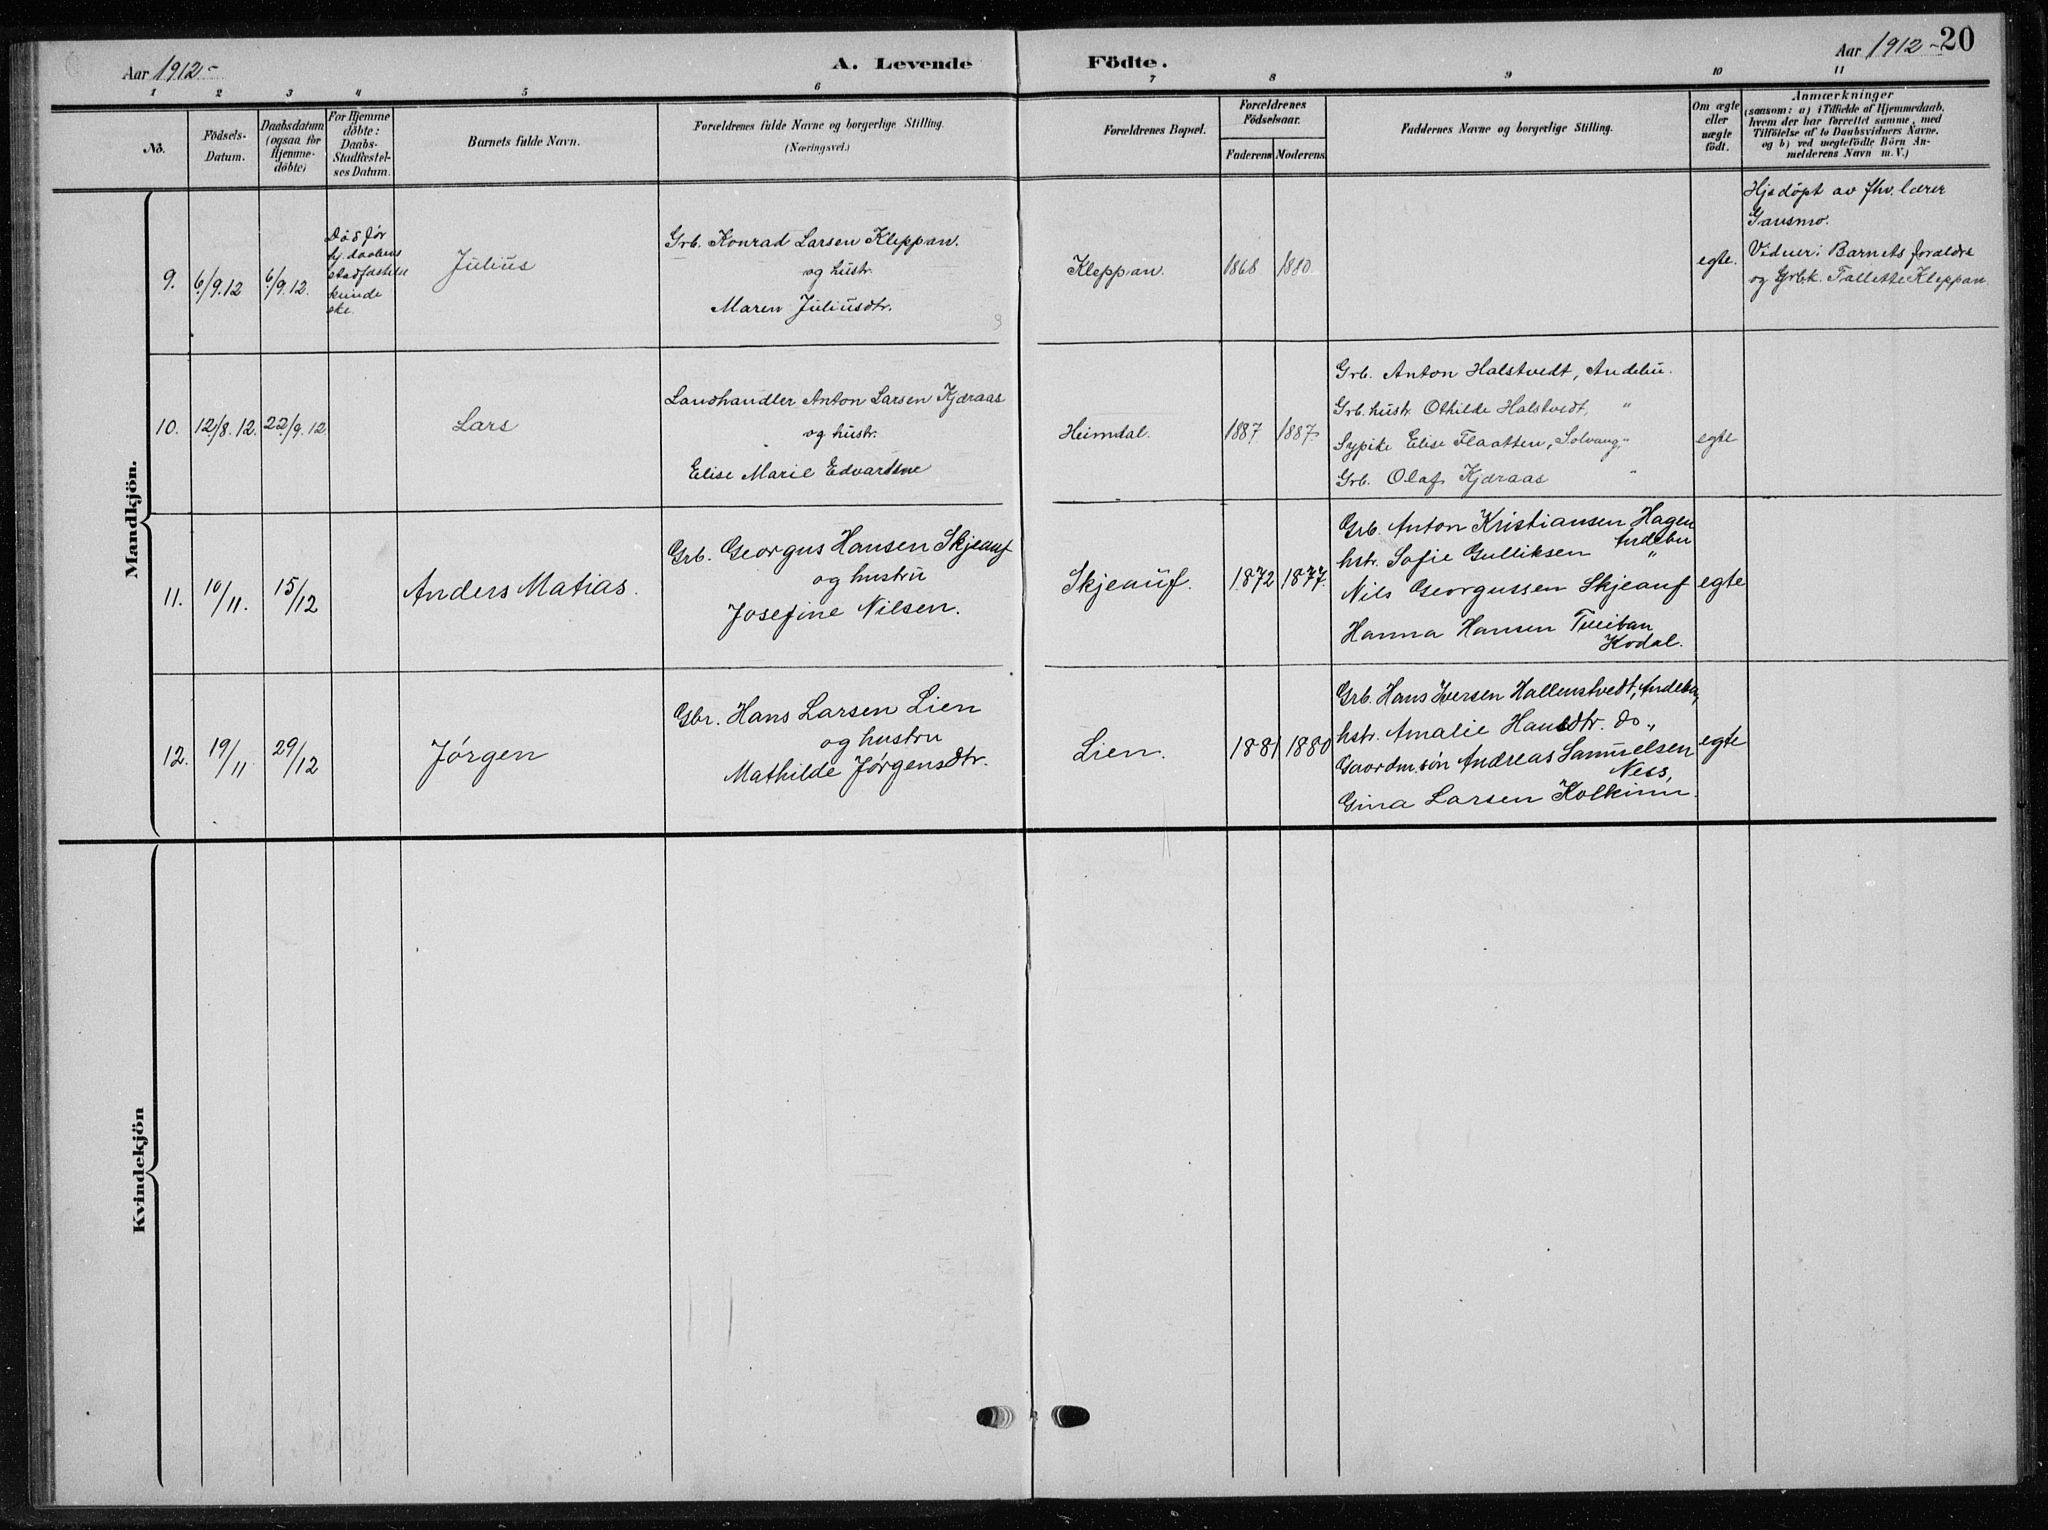 Aar 1912-
A. Levende
Födte.
Aar 1912-
20
1 2 3 4 5 6 7 8 9 10 11
No.
Födsels-
Datum.
Daabsdatum
(ogsaa for
Hjemme-
döbte)
For Hjemme
döbte:
Daabs-
Stadfæstel-
ses Datum.
Barnets fulde Navn.
Forældrenes fulde Navne og borgerlige Stilling.
(Næringsvei.)
Forældrenes Bopæl.
Forældrenes
Födselsaar.
Faderens Moderens
Faddernes Navne og borgerlige Stilling.
Om ægte
eller
uægte
födt.
Anmærkninger
(saasom: a) i Tilfælde af Hjemmedaab,
hvem der har forrettet samme, med
Tilföielse af to Daabsvidners Navne.
og b) ved uægtefödte Börn An-
melderens Navn m. V.)
Mandkjön.
9.
6/9.12
6/9.12.
Död før
hj.daabens
stadfæstelse
kunde
ske.
Julius
Grb. Konrad Larsen Kleppan.
og hustr.
Maren Juliusdtr.
Kleppan.
1868
1880.
egte.
Hjedöpt av fhv. lærer
Gausmo.
Vidner: Barnets forældre
og Grbk. Tallette Kleppan.
10.
12/8.12.
22/9.12.
Lars
Landhandler Anton Larsen Kjæraas
og hustr.
Elise Marie Edvardsen
Heimdal.
1887
1887.
Grb. Anton Halstvedt, Andebu.
Grb. hustr. Othilde Halstvedt, "
Sypike Elise Flaatten, Solvang, "
Grb. Olaf Kjæraas "
egte
11.
10/11.
15/12
Anders Matias.
Grb. Georgus Hansen Skjeauf
og hustru
Josefine Nilsen.
Skjeauf.
1872
1877.
Grb. Anton Kristiansen Hagen
Andebu
hstr. Sofie Gulliksen "
Nils Georgussen Skjeauf
Hanna Hansen Tveitan
Kodal.
egte
12.
19/11.
29/12
Jørgen
Gbr. Hans Larsen Lien
og hustru
Mathilde Jørgensdtr.
Lien.
1881
1880
Grb. Hans Iversen Hallenstvedt, Andebu,
hstr. Amalie Hansdtr. do „
Gaardm.søn Andreas Samuelsen
Ness,
Gina Larsen Kolkinn.
egte
Kvindekjön